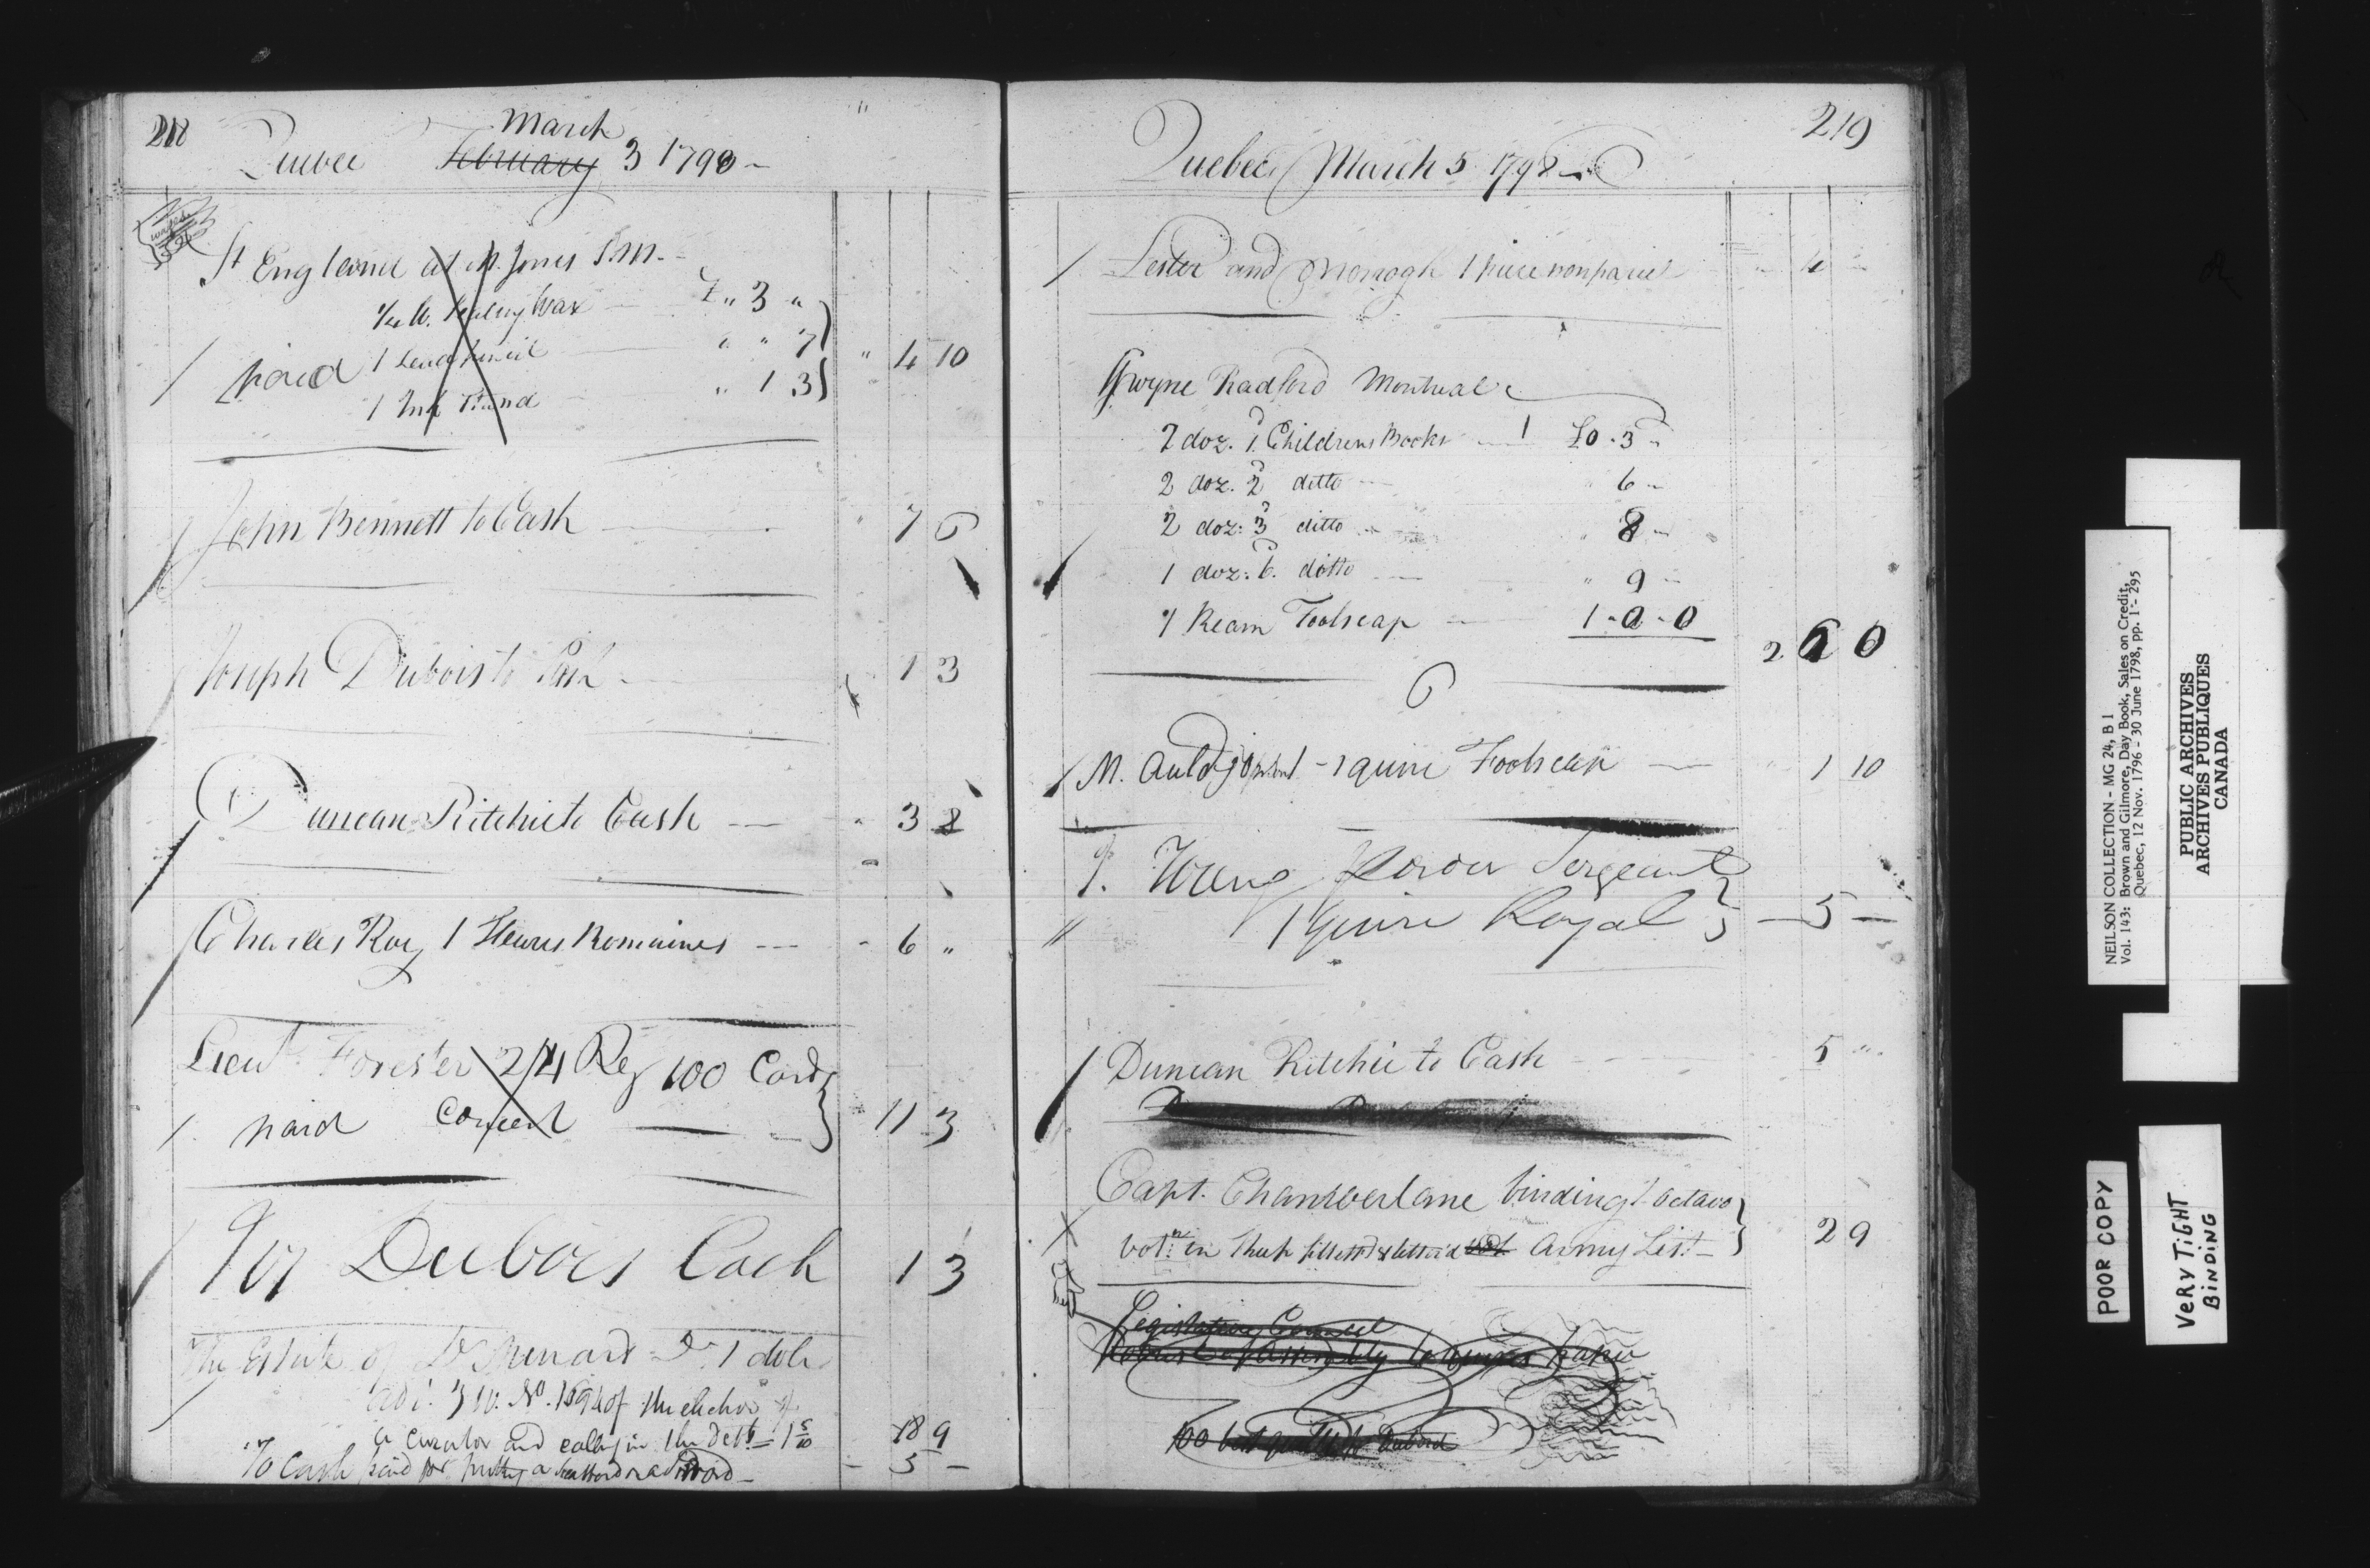 218
March
Quebec February 3 1798
St England at M. Jones P.M.
1/4 lb. Sealing Wax " 3 "
paid 1 Lead Pencil " " 7 " 4 10
1 Ink Stand " 1 3
John Bennett to Cash 7 6
Joseph Dubois to Cash 1 3
Duncan Ritchie to Cash 3 8
Charles Roy 1 Heures Romaines 6 "
Lieut. Forester 24 Reg 100 Cards
paid Concert 11 3
Jos Dubois Cash 1 3
The Estate of Dr 1 dolr
adv. 3 w. No. of the election of
a curator and calling in the Debts 18 9
To Cash paid for putting a 5
219
Quebec March 5 1798
Lester and Morrogh 1 piece nonpareil 4
Gwyne Radford Montreal
2 doz. 1 Childrens Books £0 . 3
2 doz. 2 ditto 6
2 doz: 3 ditto 8
1 doz: 6 ditto " 9
1 Ream Foolscap 1 - 0 - 0
2 6 0
6
M. Auldjo 1 quire Foolscap 1 10
J. Young Sergeant
1 Quire Royal 5
Duncan Ritchie to Cash 5 "
Capt. Chamberlane binding 1 octavo
vol: in Sheep filletted & lettered vol Army List 2 9
Legislative Council
House of Assembly to paper
100
NEILSON COLLECTION - MG 24, B 1
Vol. 1143: Brown and Gilmore, Day Book, Sales on Credit,
Quebec, 12 Nov. 1796 - 30 June 1798, pp. 1 - 295
PUBLIC ARCHIVES
ARCHIVES PUBLIQUES
CANADA
POOR COPY
VERY TIGHT
BINDING